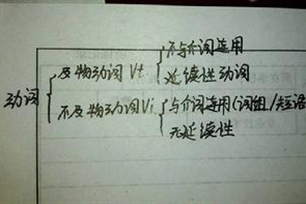 不与介词连用
及物动词 Vt
延续性动词
动词
不及物动词Vi
与介词连用(词组/短语
无延续性